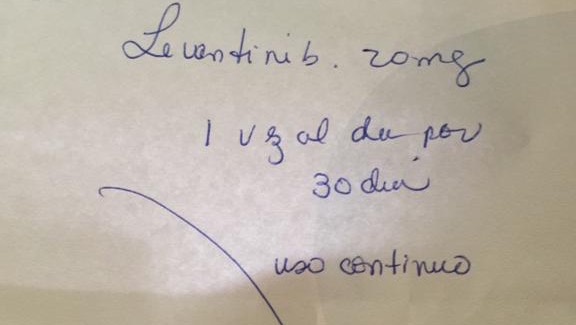 Levantinib. 20mg
1 vz al dia por
30 dia
uso continuo